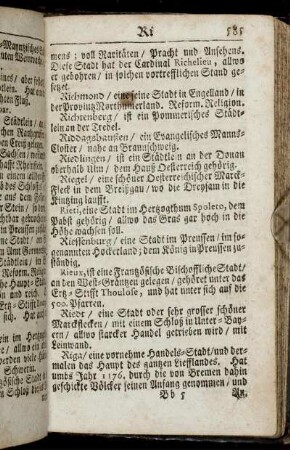 Ri 585
mens; voll Raritäten/ Pracht und Ansehens.
Diese Stadt hat der Cardinal Richelieu, allwo
er gebohren/ in solchen vortrefflichen Stand ge-
setzet.
Richmond/ eine feine Stadt in Engelland/ in
der Provintz Northumerland. Reform. Religion.
Richtenberg/ ist ein Pommerisches Städt-
lein an der Trebel.
Riddagshausen/ ein Evangelisches Manns-
Closter/ nahe an Braunschweig.
Riedlingen/ ist ein Städtlein an der Donau
oberhalb Ulm/ dem Hauß Oesterreich gehörig.
Riegel/ eine schöner Oesterreichischer Marck-
Fleck in dem Breißgau/ wo die Dreysam in die
Kintzing laufft.
Rieti, eine Stadt im Hertzogthum Spoleto, dem
Pabst gehörig/ allwo das Gras gar hoch in die
Höhe wachsen soll.
Riessenburg/ eine Stadt im Preussen/ im so-
genannten Hockerland; dem König in Preussen zu-
ständig.
Rieux, ist eine Frantzösische Bischoffliche Stadt/
an den West-Gräntzen gelegen/ gehöret unter das
Ertz-Stifft Thoulose, und hat unter sich auf die
500. Pfarren.
Riedt/ eine Stadt oder sehr grosser schöner
Marckflecken/ mit einem Schloß in Unter-Bay-
ern/ allwo starcker Handel getrieben wird/ mit
Leinwand.
Riga/ eine vornehme Handels-Stadt/ und der-
malen das Haupt des gantzen Liefflandes. Hat
umbs Jahr 1176. durch die von Bremen dahin
geschickte Völcker seinen Anfang genommen/ und
Bb 5